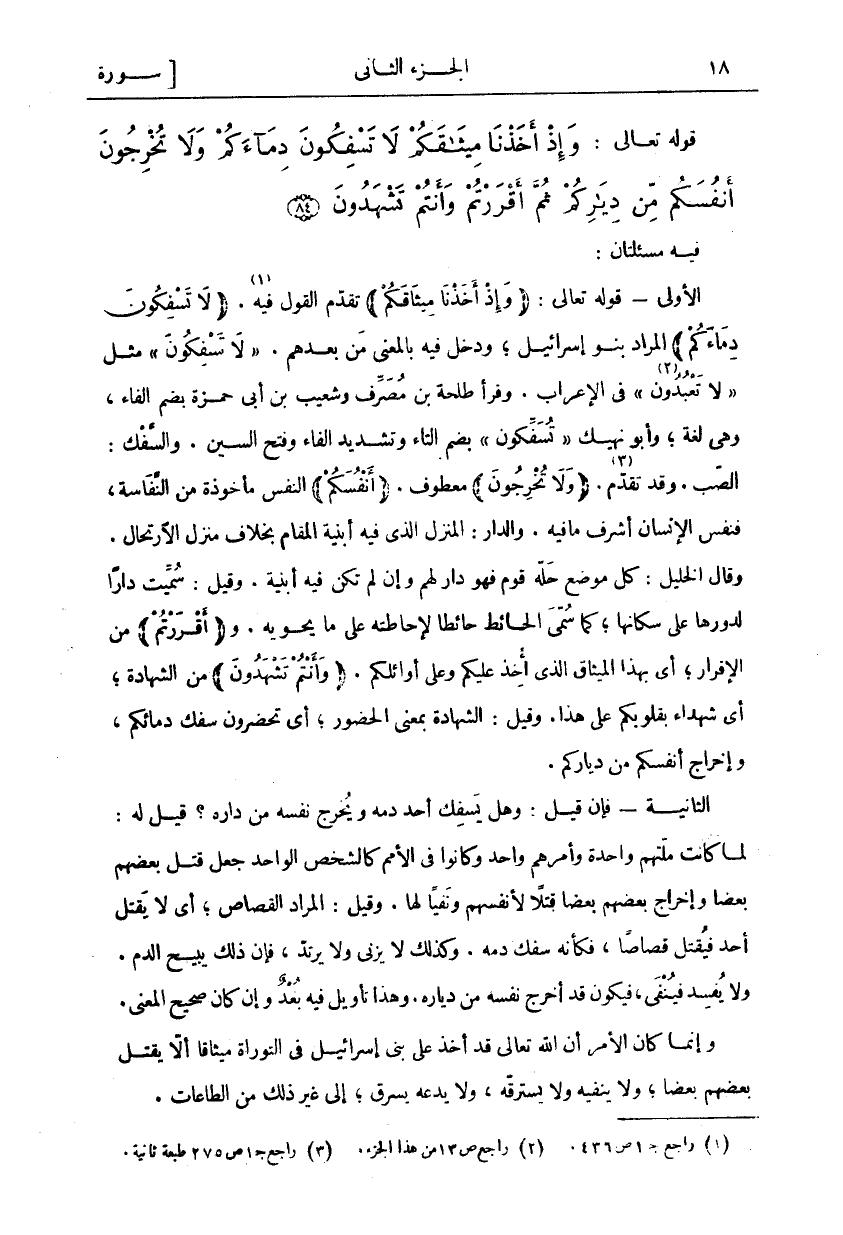 ١٨ الجـزء الثانى [ سـورة
قوله تعـالى : وَإِذْ أَخَذْنَا مِيثَـٰقَكُمْ لَا تَسْفِكُونَ دِمَآءَكُمْ وَلَا تُخْرِجُونَ
أَنفُسَكُم مِّن دِيَـٰرِكُمْ ثُمَّ أَقْرَرْتُمْ وَأَنتُمْ تَشْهَدُونَ ﴿٨٤﴾
فيـه مسئلتان :
الأولى — قوله تعالى : ﴿ وَإِذْ أَخَذْنَا مِيثَاقَكُمْ ﴾ تقدّم القول فيه (١) . ﴿ لَا تَسْفِكُونَ
دِمَاءَكُمْ ﴾ المراد بنـو إسرائيـل ؛ ودخل فيه بالمعنى مَن بعـدهم . « لَا تَسْفِكُونَ » مثـل
« لا تَعْبُدُون (٢) » فى الإعراب . وقرأ طلحة بن مُصَرِّف وشعيب بن أبى حمـزة بضم الفاء ،
وهى لغة ؛ وأبو نهيـك « تُسَفِّكون » بضم التاء وتشـديد الفاء وفتح السـين . والسَّفْك :
الصّب . وقد تقدّم (٣) . ﴿ وَلَا تُخْرِجُونَ ﴾ معطوف . ﴿ أَنْفُسَكُمْ ﴾ النفس مأخوذة من النَّفَاسة ،
فنفس الإنسان أشرف مافيه . والدار : المنزل الذى فيه أبنية المقام بخلاف منزل الأرتحال .
وقال الخليل : كل موضع حَلّه قوم فهو دار لهم وإن لم تكن فيه أبنية . وقيل : سُمِّيت دارًا
لدورها على سكانها ؛ كما سُمِّىَ الحـائط حائطا لإحاطته على ما يحـويه . و ﴿ أَقْرَرْتُمْ ﴾ من
الإقرار ؛ أى بهذا الميثاق الذى أُخِذ عليكم وعلى أوائلكم . ﴿ وَأَنْتُمْ تَشْهَدُونَ ﴾ من الشهادة ؛
أى شهداء بقلوبكم على هذا . وقيل : الشهادة بمعنى الحضور ؛ أى تحضرون سفك دمائكم ،
وإخراج أنفسكم من دياركم .
الثانيـة — فإن قيـل : وهل يَسفِك أحد دمه ويُخرج نفسه من داره ؟ قيـل له :
لمـا كانت ملّتهم واحدة وأمرهم واحد وكانوا فى الأمم كالشخص الواحد جعل قتـل بعضهم
بعضا وإخراج بعضهم بعضا قتلًا لأنفسهم ونَفيًا لها . وقيل : المراد القصاص ؛ أى لا يَقتل
أحد فيُقتل قصاصًا ، فكأنه سفك دمه . وكذلك لا يزنى ولا يرتدّ ، فإن ذلك يبيـح الدم .
ولا يُفسِد فيُنْفَى ، فيكون قد أخرج نفسه من دياره . وهذا تأويل فيه بُعْدٌ وإن كان صحيح المعنى .
وإنمـا كان الأمر أن الله تعالى قد أخذ على بنى إسرائيـل فى التوراة ميثاقا ألّا يقتـل
بعضهم بعضا ؛ ولا ينفيه ولا يسترقّه ، ولا يدعه يسرق ؛ إلى غير ذلك من الطاعات .
(١) راجع جـ ١ ص ٤٣٦ . (٢) راجع ص ١٣ من هذا الجزء . (٣) راجع جـ ١ ص ٢٧٥ طبعة ثانية .